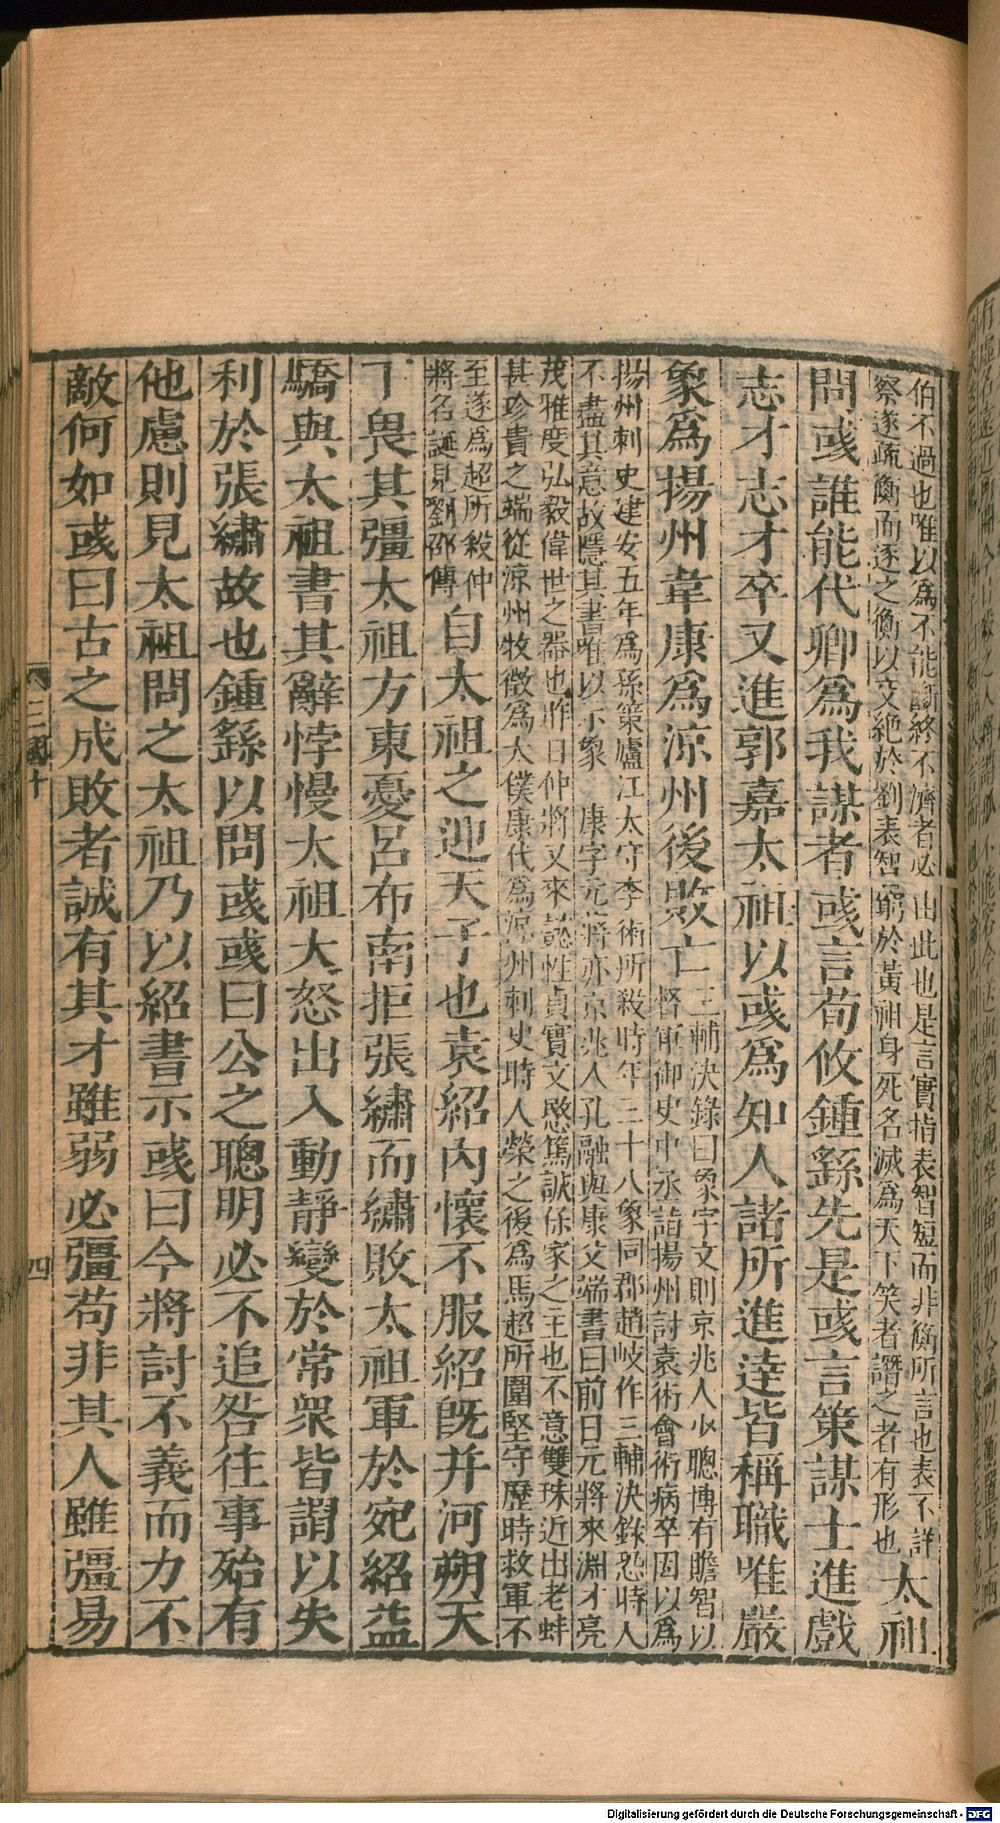 伯不過也唯以爲不能斷終不濟者必出此也是言實指表智短而非衡所言也表不詳
察遂疏衡而逐之衡以交絶於劉表智窮於黃祖身死名滅爲天下笑者譖之者有形也
太祖
問彧誰能代卿爲我謀者彧言荀攸鍾繇先是彧言策謀士進戲
志才志才卒又進郭嘉太祖以彧爲知人諸所進達皆稱職唯嚴
象爲揚州韋康爲涼州後敗亡
三輔決錄曰象字文則京兆人少聰博有膽智以
督軍御史中丞詣揚州討袁術會術病卒因以爲
揚州刺史建安五年爲孫策廬江太守李術所殺時年三十八象同郡趙岐作三輔決錄恐時人
不盡其意故隱其書唯以示象 康字元將亦京兆人孔融與康父端書曰前日元將來淵才亮
茂雅度弘毅偉世之器也昨日仲將又來懿性貞實文愍篤誠保家之主也不意雙珠近出老蚌
甚珍貴之端從涼州牧徵爲太僕康代爲涼州刺史時人榮之後爲馬超所圍堅守歷時救軍不
至遂爲超所殺仲
將名誕見劉邵傳
自太祖之迎天子也袁紹內懷不服紹旣并河朔天
下畏其彊太祖方東憂呂布南拒張繡而繡敗太祖軍於宛紹益
驕與太祖書其辭悖慢太祖大怒出入動靜變於常衆皆謂以失
利於張繡故也鍾繇以問彧彧曰公之聰明必不追咎往事殆有
他慮則見太祖問之太祖乃以紹書示彧曰今將討不義而力不
敵何如彧曰古之成敗者誠有其才雖弱必彊苟非其人雖彊易
三國十
四
Digitalisierung gefördert durch die Deutsche Forschungsgemeinschaft - DFG